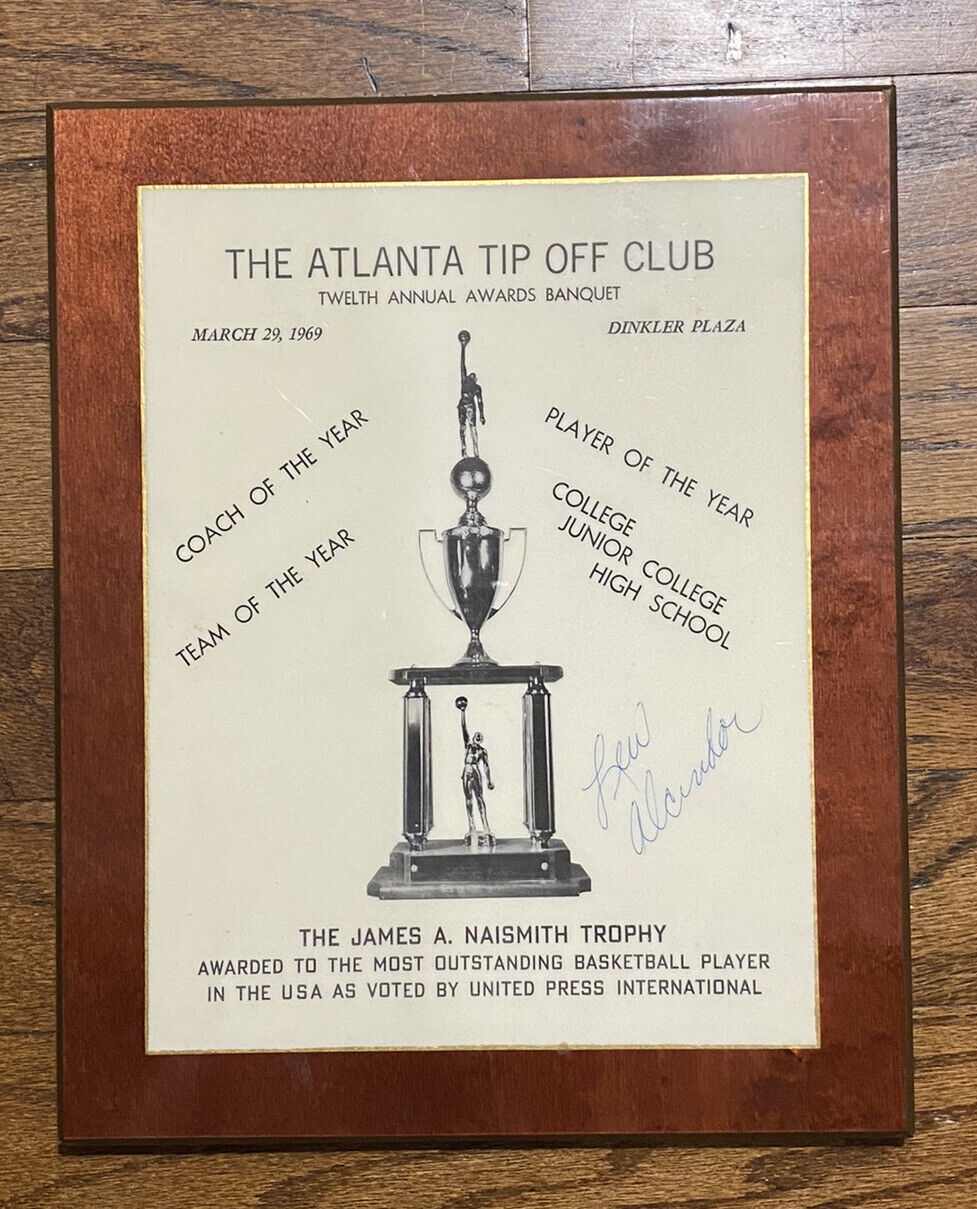 THE ATLANTA TIP OFF CLUB
TWELTH ANNUAL AWARDS BANQUET
MARCH 29, 1969
DINKLER PLAZA
COACH OF THE YEAR
TEAM OF THE YEAR
PLAYER OF THE YEAR
COLLEGE
JUNIOR COLLEGE
HIGH SCHOOL
Lew
Alcindor
THE JAMES A. NAISMITH TROPHY
AWARDED TO THE MOST OUTSTANDING BASKETBALL PLAYER
IN THE USA AS VOTED BY UNITED PRESS INTERNATIONAL